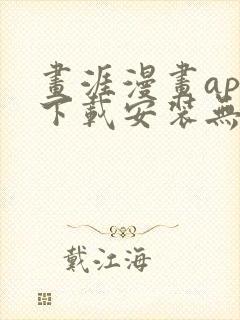 畫涯漫畫ap
下載安裝無
戴江海